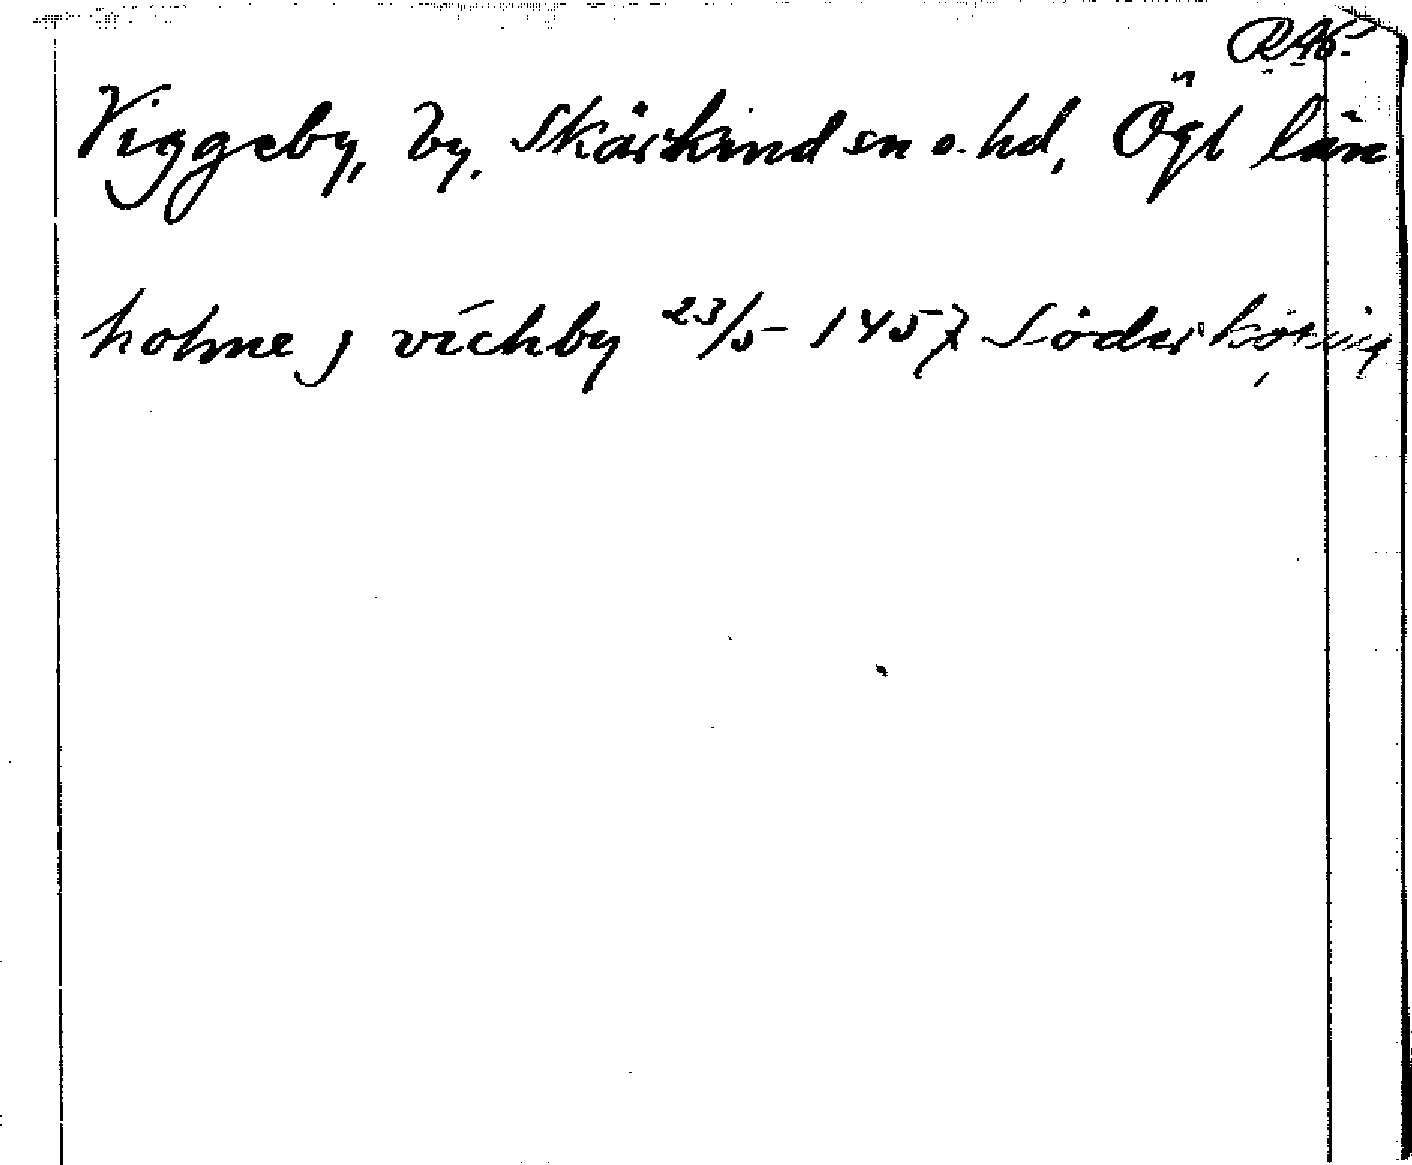 RAp.
Viggeby, by, Skärkind sn o. hd, Ögl län
holme j vichby 23/5 1457 Söderköping